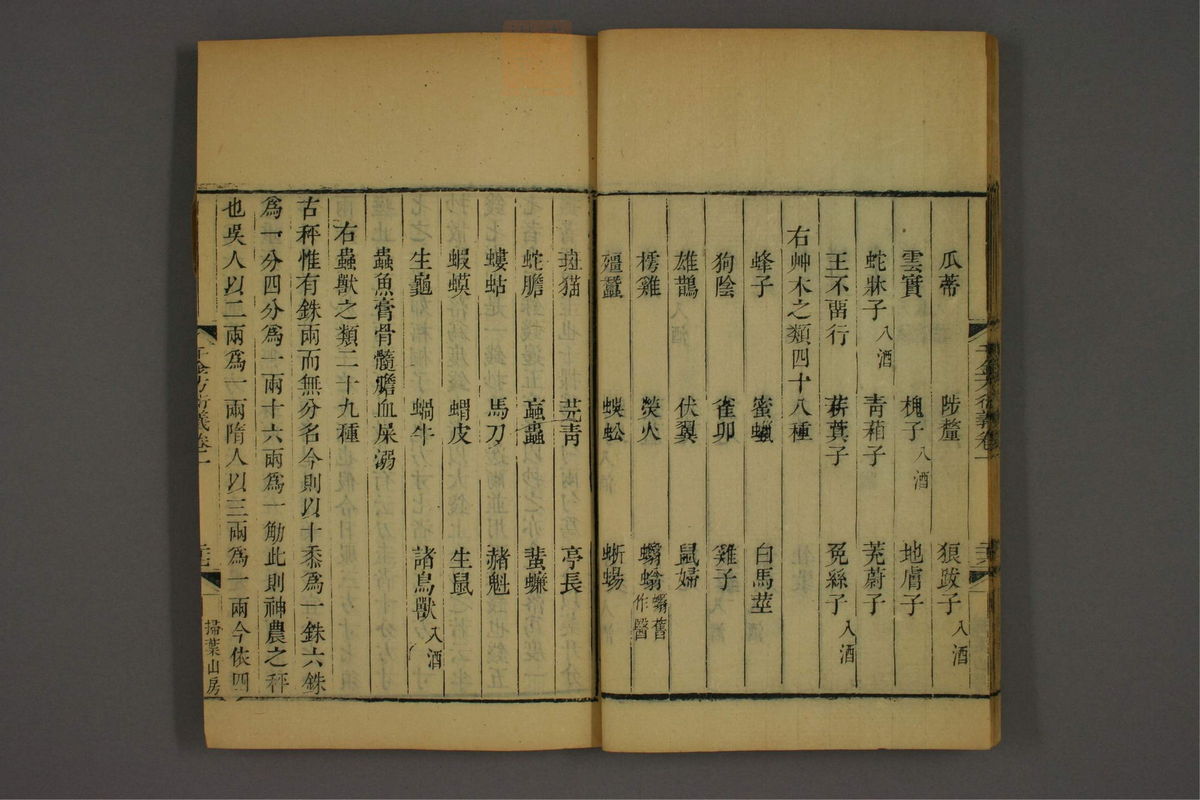 瓜蒂 陟釐 狼跋子入酒
雲實 槐子入酒 地膚子
蛇牀子入酒 青葙子 茺蔚子
王不畱行 菥蓂子 菟絲子入酒
右艸木之類四十八種
蜂子 蜜蠟 白馬莖
狗陰 雀卵 雞子
雄鵲 伏翼 鼠婦
樗雞 熒火 蠮螉蠮舊作醫
殭蠶 蜈蚣 蜥蜴
斑貓 芫青 亭長
蛇膽 蝱蟲 蜚蠊
螻蛄 馬刀 赭魁
蝦蟆 蝟皮 生鼠
生龜 蝸牛 諸鳥獸入酒
蟲魚膏骨髓膽血屎溺
右蟲獸之類二十九種
古秤惟有銖兩而無分名今則以十黍爲一銖六銖
爲一分四分爲一兩十六兩爲一觔此則神農之秤
也吳人以二兩爲一兩隋人以三兩爲一兩今依四
千金方衍義卷一
掃葉山房